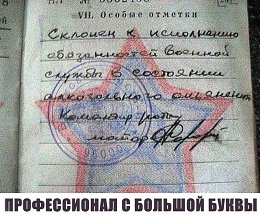 VII. Особые отметки
Склонен к исполнению
обязанностей военной
службы в состоянии
алкогольного опьянения
Командир роты
майор
ПРОФЕССИОНАЛ С БОЛЬШОЙ БУКВЫ